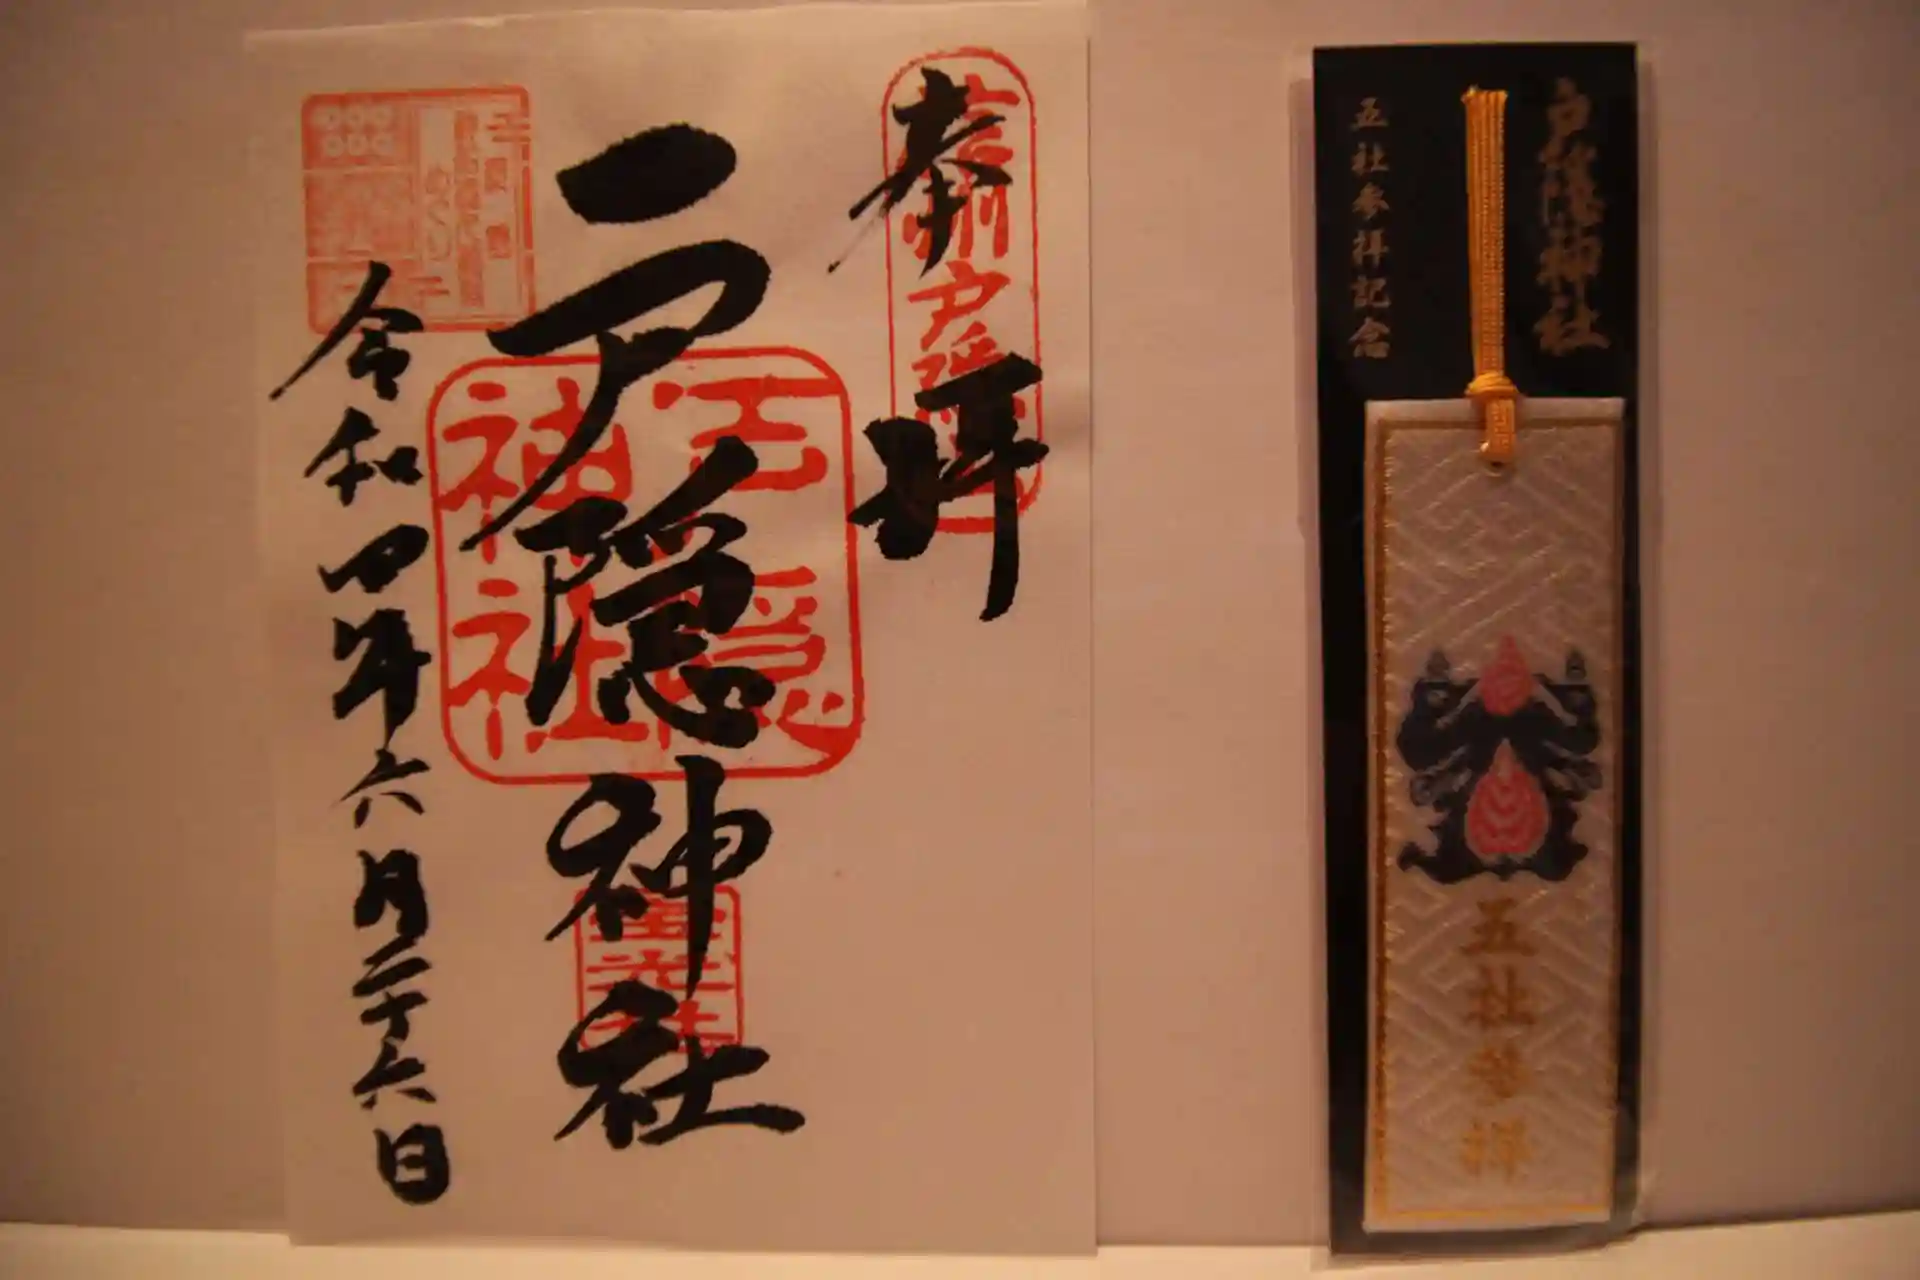 奉拝
信州戸隠
戸隠神社
戸隠神社
宝光社
令和四年六月二十六日
戸隠神社
五社参拝記念
五社参拝